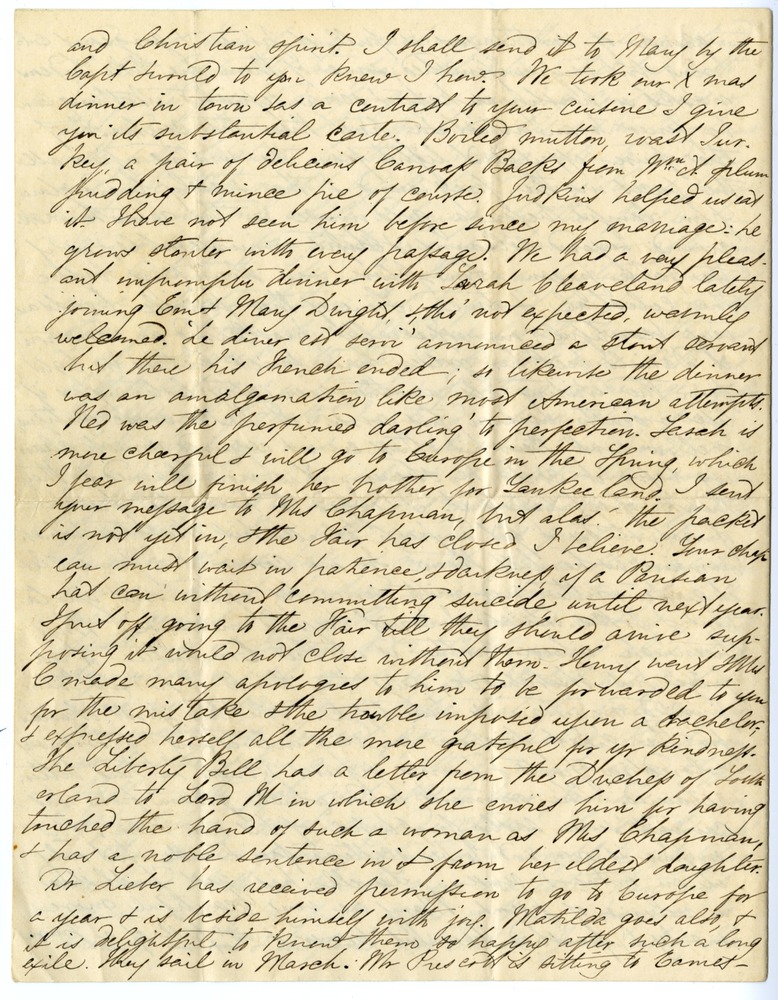 and Christian spirit. I shall send it to Mary by the
Capt would to you knew I how. We took our X mas
dinner in town & as a contrast to your cuisine I give
you its substantial carte. Boiled mutton, roast Tur-
key, a pair of delicious Canvass Backs from Wm. A. plum
pudding & mince pie of course. Judkins helped us eat
it. I have not seen him before since my marriage: he
grows stouter with every passage. We had a very pleas-
ant impromptu dinner with Sarah Cleaveland lately
joining Em & Mary Dwight, & tho' not expected, warmly
welcomed. 'Le diner est servi' announced a stout servant
but there his French ended; so likewise the dinner
was an amalgamation like most American attempts.
Ned was the 'perfumed darling' to perfection. Sarah is
more cheerful & will go to Europe in the Spring, which
I fear will finish her bother for Yankee land. I sent
your message to Mrs Chapman, but alas! the packet
is not yet in, & the Fair has closed I believe. Your chap
eau must wait in patience, & darkness, if a Parisian
hat can without committing suicide until next year.
I put off going to the Fair till they should arrive sup-
posing it would not close without them. Henry went & Mrs
C made many apologies to him to be forwarded to you
for the mistake & the trouble imposed upon a bachelor,
& expressed herself all the more grateful for yr kindness.
The Liberty Bell has a letter from the Duchess of South
erland to Lord M in which she envies him for having
touched the hand of such a woman as Mrs Chapman,
& has a noble sentence in it from her eldest daughter.
Dr Lieber has received permission to go to Europe for
a year & is beside himself with joy. Matilda goes also, &
it is delightful to know them so happy after such a long
exile. They sail in March. Mr Prescott is sitting to Eames-